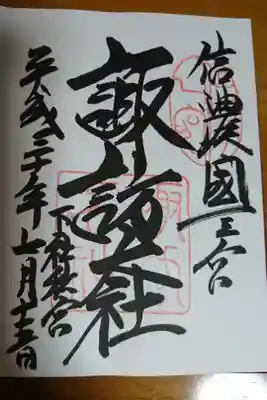 信濃國一之宮
諏訪社
下社秋宮
平成三十年七月十五日